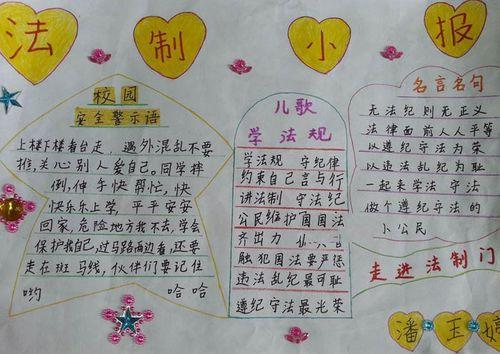 法制小报
校园
安全警示语
上楼下楼看台走 遇外混乱不要
推,关心别人爱自己。同学摔
倒,伸手快帮忙,快
快乐乐上学,平平安安
回家,危险地方我不去,学会
保护我自己,过马路两边看,还要
走在斑马线,伙伴们要记住
哟 哈哈
儿歌
学法规
学法规 守纪律
约束自己言与行
讲法制 守法纪
公民维护国国法
齐出力
触犯国法要严惩
违法乱纪最可耻
遵纪守法最光荣
名言名句
无法纪则无正义
法律面前人人平等
以遵纪守法为荣
以违法乱纪为耻
一起来学法守法
做个遵纪守法的
小公民
走进法制门
潘玉婷